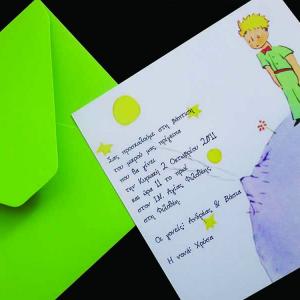 Σας προσκαλούμε στη βάπτιση
του μικρού μας πρίγκιπα
που θα γίνει
την Κυριακή 2 Οκτωβρίου 2011
και ώρα 11 το πρωί
στον Ι.Ν. Αγίας Φιλοθέης
στη Φιλοθέη
Οι γονείς: Ανδρέας & Βάσια
Η νονά: Χρύσα